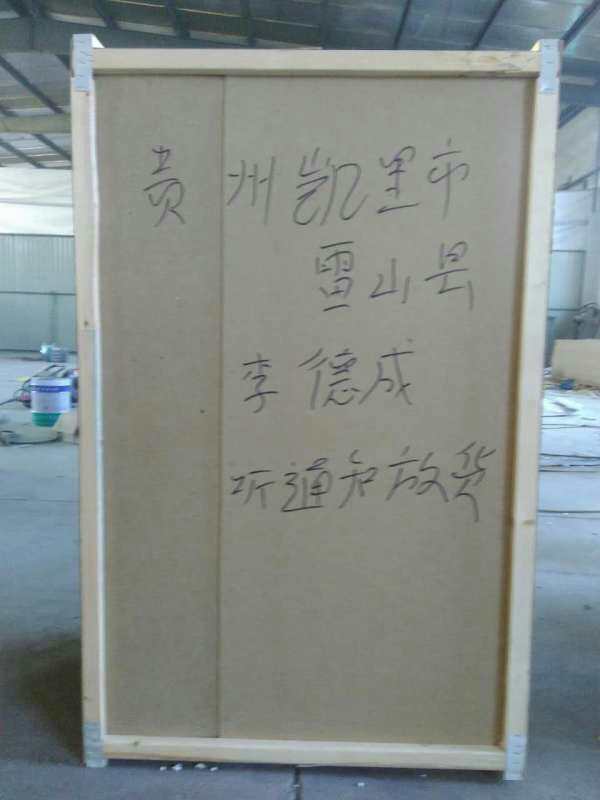 贵州凯里市
雷山县
李德成
听通知放货